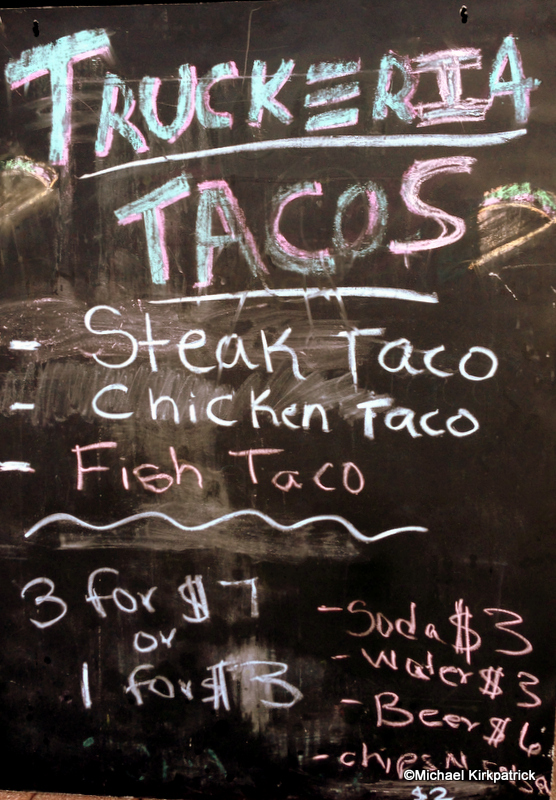 TRUCKERIA
TACOS
- Steak Taco
- Chicken Taco
- Fish Taco
3 for $7
or
1 for $3
- Soda $3
- Water $3
- Beer $6
- chips N
$2
©Michael Kirkpatrick